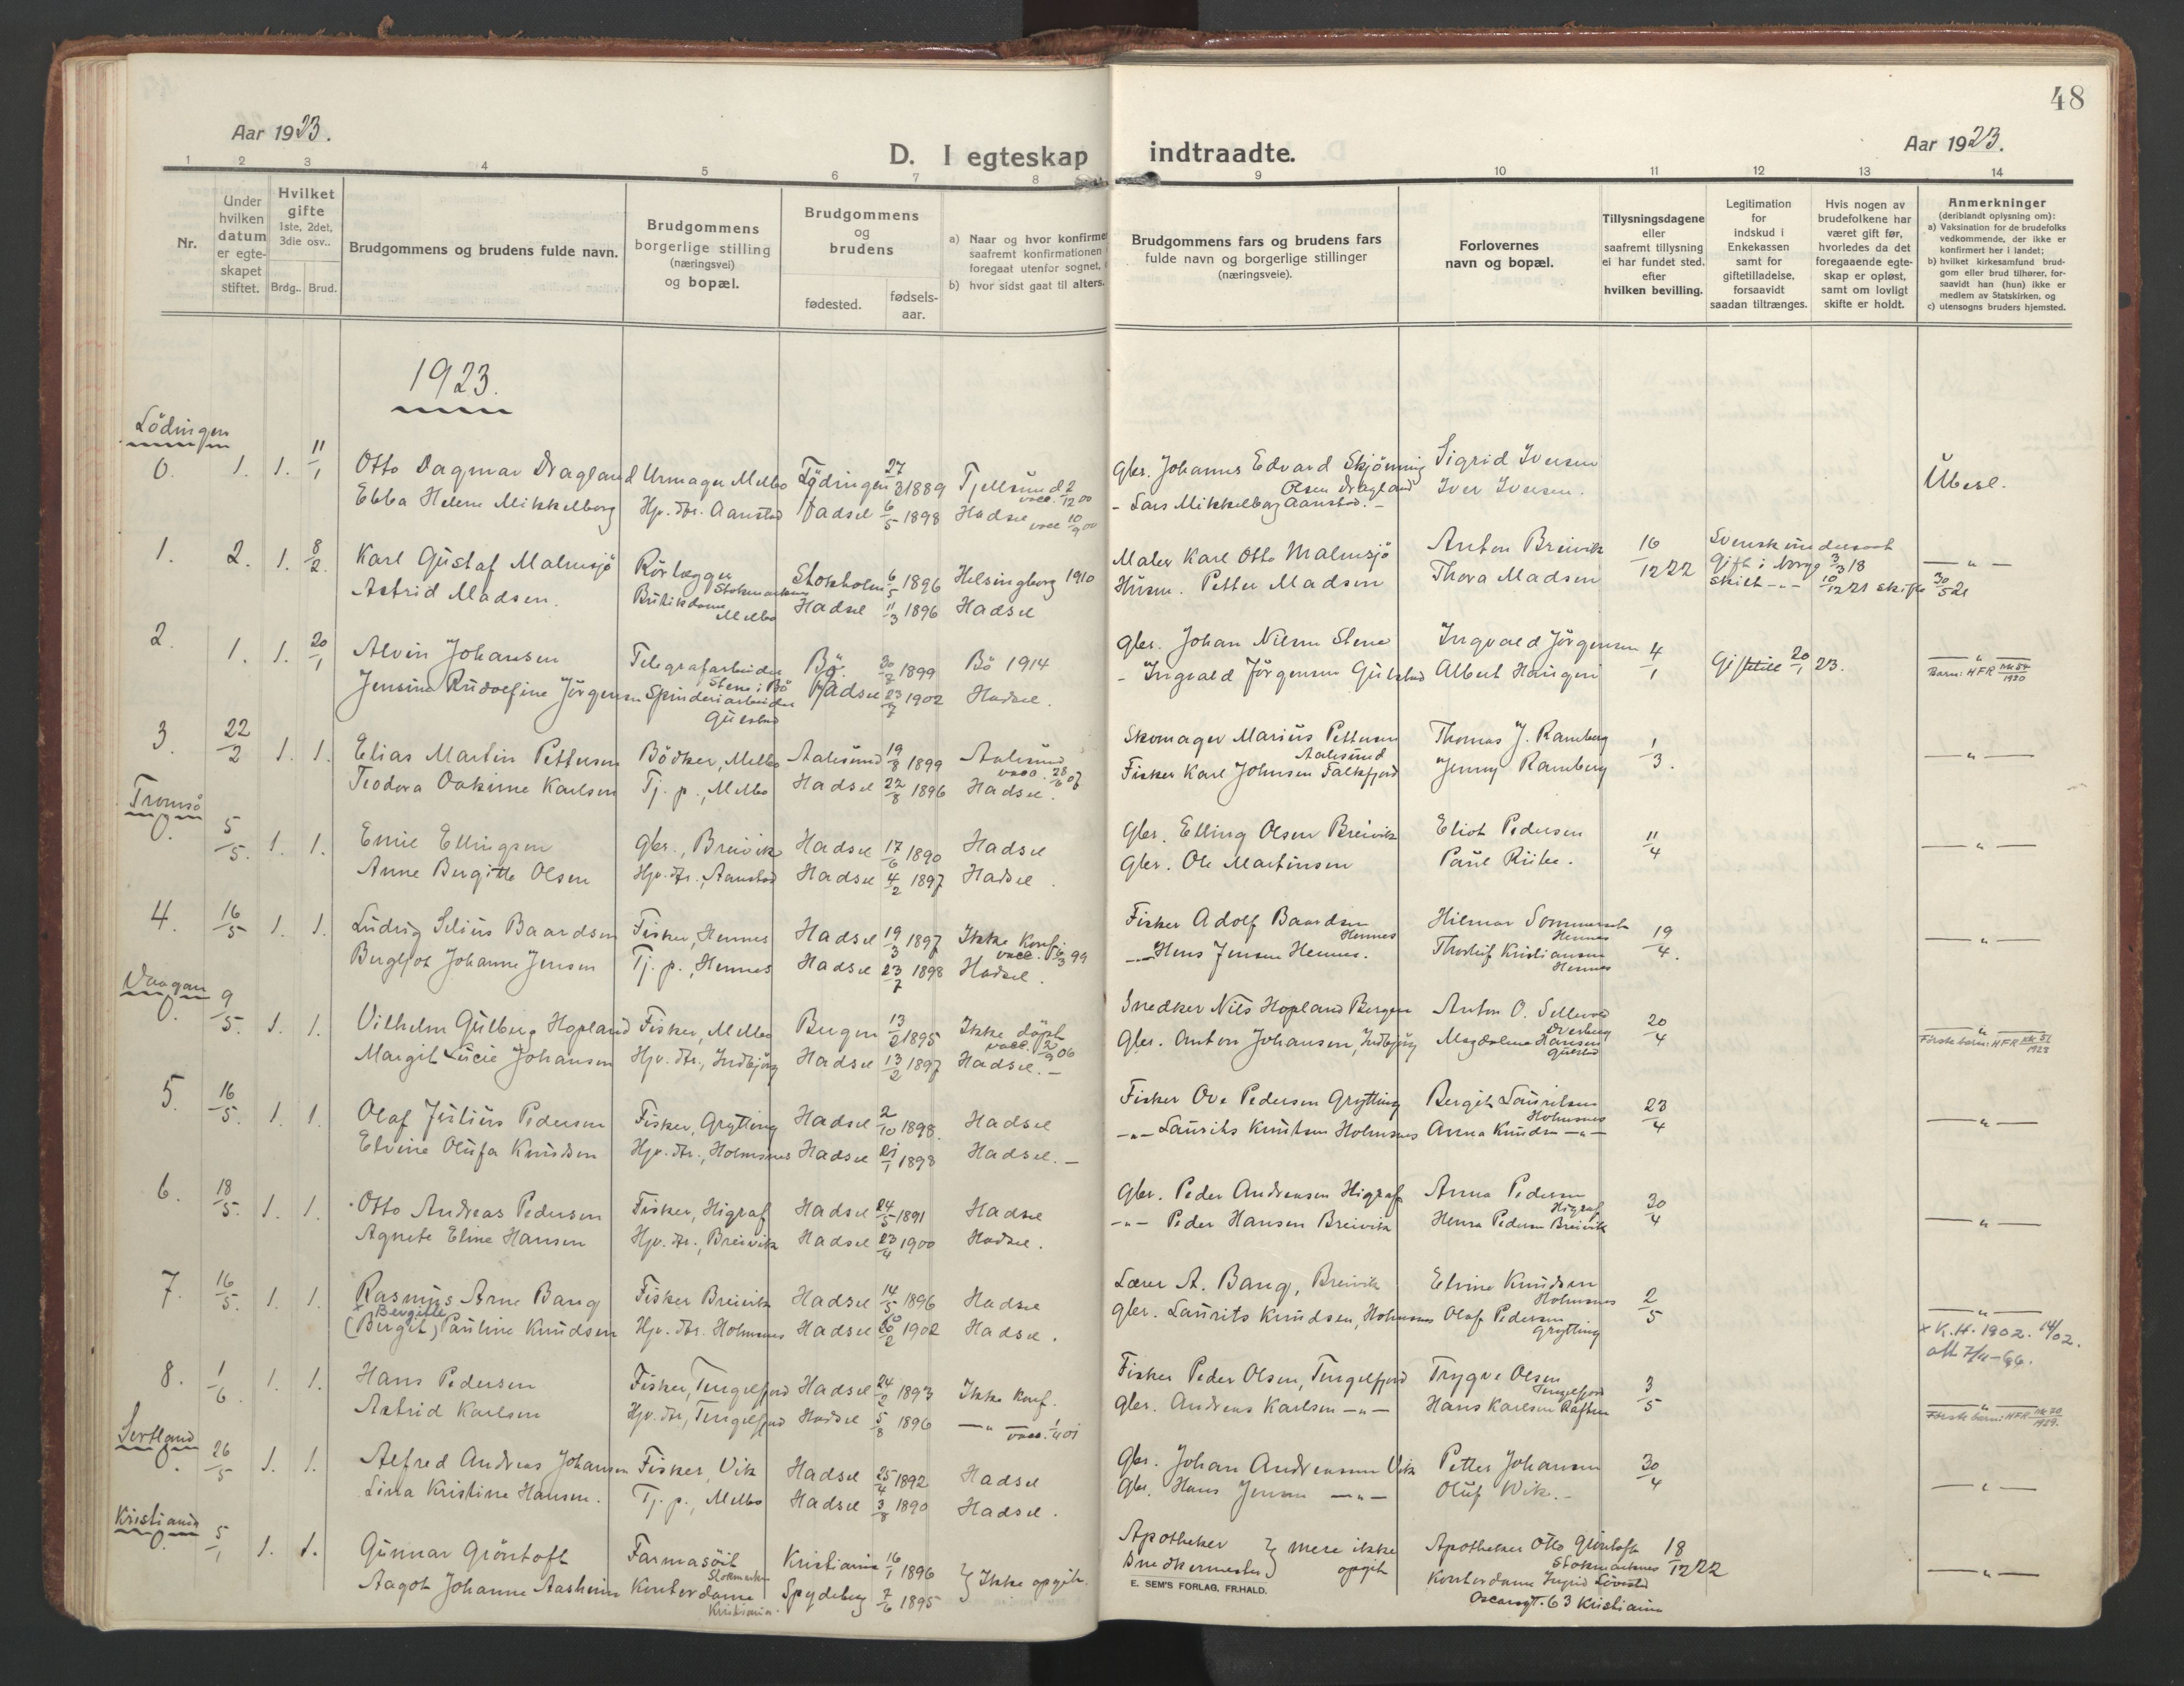 48
Aar 1923.
D. I egteskap indtraadte.
Aar 1923.
1 2 3 4 5 6 7 8 9 10 11 12 13 14
Nr.
Under hvilken datum er egte-skapet stiftet.
Hvilket gifte 1ste, 2det, 3die osv.. Brdg.. Brud.
Brudgommens og brudens fulde navn.
Brudgommens borgerlige stilling (næringsvei) og bopæl.
Brudgommens og brudens
fødested. fødsels-aar.
a) Naar og hvor konfirme
saafremt konfirmationen
foregaat utenfor sognet,
b) hvor sidst gaat til alters.
Brudgommens fars og brudens fars
fulde navn og borgerlige stillinger
(næringsveie).
Forlovernes
navn og bopæl.
Tillysningsdagene
eller
saafremt tillysning
ei har fundet sted.
efter
hvilken bevilling.
Legitimation
for
indskud i
Enkekassen
samt for
giftetilladelse,
forsaavidt
saadan tiltrænges.
Hvis nogen av
brudefolkene har
været gift før,
hvorledes da det
foregaaende egte-
skap er opløst,
samt om lovligt
skifte er holdt.
Anmerkninger
(deriblandt oplysning om):
a) Vaksination for de brudefolks
vedkommende, der ikke er
konfirmert her i landet;
b) hvilket kirkesamfund brud-
gom eller brud tilhører, for-
saavidt han (hun) ikke er
medlem av Statskirken, og
c) utensogns bruders hjemsted.
1923.
Lödingen
0. 1. 1. 11/1 Otto Dagmar Dragland Urmager Melbo Lödingen 27/3 1889 Tjellsund vacc. 2/12 00 Gbr. Johannes Edvard Skjönning Olsen Dragland Sigrid Iversen Übesl.
Ebba Helene Mikkelborg Hjv. dtr. Aanstad Hadsel 6/5 1898 Hadsel vacc 10/9 00 - Lars Mikkelborg Aanstad. - Iver Iversen.
1. 2. 1. 8/2. Karl Gustaf Malmsjö Rörlægger Stokmarknes Stokholm 6/5 1896 Helsingborg 1910 Maler Karl Otto Malmsjö Anton Breivik 16/12 22 Svensk undersaat
Gift i Norge 3/3 18
Astrid Madsen. Butikdame Melbo Hadsel 11/3 1896 Hadsel Husm. Petter Madsen Thora Madsen skilt -"- 10/12 21 skifte 30/5 21
2. 1. 1. 20/1 Alvin Johansen Telegrafarbeider Stene i Bö Bö 30/8 1899 Bö 1914 Gbr. Johan Nilsen Stene Ingvald Jörgensen 4/1 Giftetill 20/1 23.
Jensine Rudolfine Jörgensen Spinderiarbeider Gulstad Hadsel 23/7 1902 Hadsel. - Ingvald Jörgensen Gulstad Albert Haugen Barn: HFR nr 54/1920
3. 22/2 1. 1. Elias Martin Pettersen Bödker, Melbo Aalesund 19/8 1899 Aalesund vacc. 28/6 07 Skomager Marius Pettersen Aalesund Thomas J. Ramberg 1/3. - " -
Teodora Oakime Karlsen Tj. p., Melbo Hadsel 22/8 1896 Hadsel. Fisker Karl Johnsen Falkfjord Jenny Ramberg
Tromsö
0. 5/5. 1. 1. Emil Ellingsen Gbr., Breivik Hadsel 17/6 1890 Hadsel Gbr. Elling Olsen Breivik Eliot Pedersen 11/4 - " -
Anne Bergitte Olsen Hjv. dtr., Aanstad Hadsel 4/2 1897 Hadsel. Gbr. Ole Martinsen Paul Riise.
4. 16/5 1. 1. Ludvig Selius Baardsen Fisker, Hennes Hadsel 19/3 1897 Ikke konf. vacc. 16/3 99 Fisker Adolf Baardsen Hennes Hilmar Sommerseth Hennes 19/4. - " -
Bergljot Johanne Jensen Tj. p., Hennes Hadsel 23/7 1898 Hadsel. -"- Hens Jensen Hennes. Thorleif Kristiansen Hennes
Vaagan
0. 9/5. 1. 1. Vilhelm Gulberg Hopland Fisker, Melbo Bergen 13/2 1895 Ikke döpt vacc. 2/9 06 Snedker Nils Hopland Bergen Anton O. Sellevold Overberg 20/4 - " -
Margit Lucie Johansen Hjv. dtr., Indbjörg Hadsel 13/2 1897 Hadsel. - Gbr. Anton Johansen, Indbjörg Magdalene Hansen Gulstad Förste barn: HFR nr 51/1923
5. 16/5. 1. 1. Olaf Julius Pedersen Fisker, Grytting Hadsel 2/10 1898. Hadsel Fisker Ove Pedersen Grytting Bergit Lauritsen Holmsnes 23/4 - " -
Elvine Olufa Knudsen Hjv. dtr., Holmsnes Hadsel 21/1 1898 Hadsel. - -"- Laurits Knutsen Holmsnes Anna Knudsen -"-
6. 18/5. 1. 1. Otto Andreas Pedersen Fisker, Higraf Hadsel 24/5 1891 Hadsel Gbr. Peder Andreasen Higraf Anna Pedersen Higraf 30/4 - " -
Agnete Eline Hansen Hjv. dtr., Breivik Hadsel 23/4 1900 Hadsel. -"- Peder Hansen Breivik Henra Pedersen Breivik
7. 16/5. 1. 1. Rasmus Arne Bang Fisker Breivik Hadsel 14/5 1896 Hadsel Lærer A. Bang, Breivik Elvine Knudsen Holmsnes 2/5 - " -
x Bergitte
(Bergit) Pauline Knudsen Hjv. dtr. Holmsnes Hadsel 20/2 1902 Hadsel. Gbr. Laurits Knudsen, Holmsnes Olaf Pedersen Grytting x K.H. 1902. 14/02.
att 7/11-66.
8. 1/6 1. 1. Hans Pedersen Fisker, Tengelfjord Hadsel 24/2 1893 Ikke konf. Fisker Peder Olsen, Tengelfjord Trygve Olsen Tengelfjord 3/5 - " -
Astrid Karlsen Hjv. dtr, Tengelfjord Hadsel 5/8 1896 - " - vacc. 1/4 01 Gbr. Andreas Karlsen -"- Hans Karlsen Raften Förste barn: HFR nr 20/1929.
Sortland
0. 26/5 1. 1. Alfred Andreas Johansen Fisker, Vik Hadsel 25/4 1892 Hadsel Gbr. Johan Andreassen Vik Petter Johansen 30/4 - " -
Lina Kristine Hansen. Tj. p., Melbo Hadsel 3/8 1890 Hadsel. Gbr. Hans Jensen -"- Oluf Wik. -
Kristiania
0. 5/1 1. 1. Gunnar Gröntoft Farmasöit Stokmarkn Kristiania 16/1 1896 } Ikke opgit. Apotheker } mere ikke opgit Apotheker Otto Gröntoft Stokmarknes 18/12 22 - " -
Aagot Johanne Aasheim Kontordame Kristiania. Spydeberg 7/6 1895 Snedkermester Kontordame Ingrid Lövstad
Oscarsgt. 63 Kristiania
E. SEM'S FORLAG, FR.HALD.